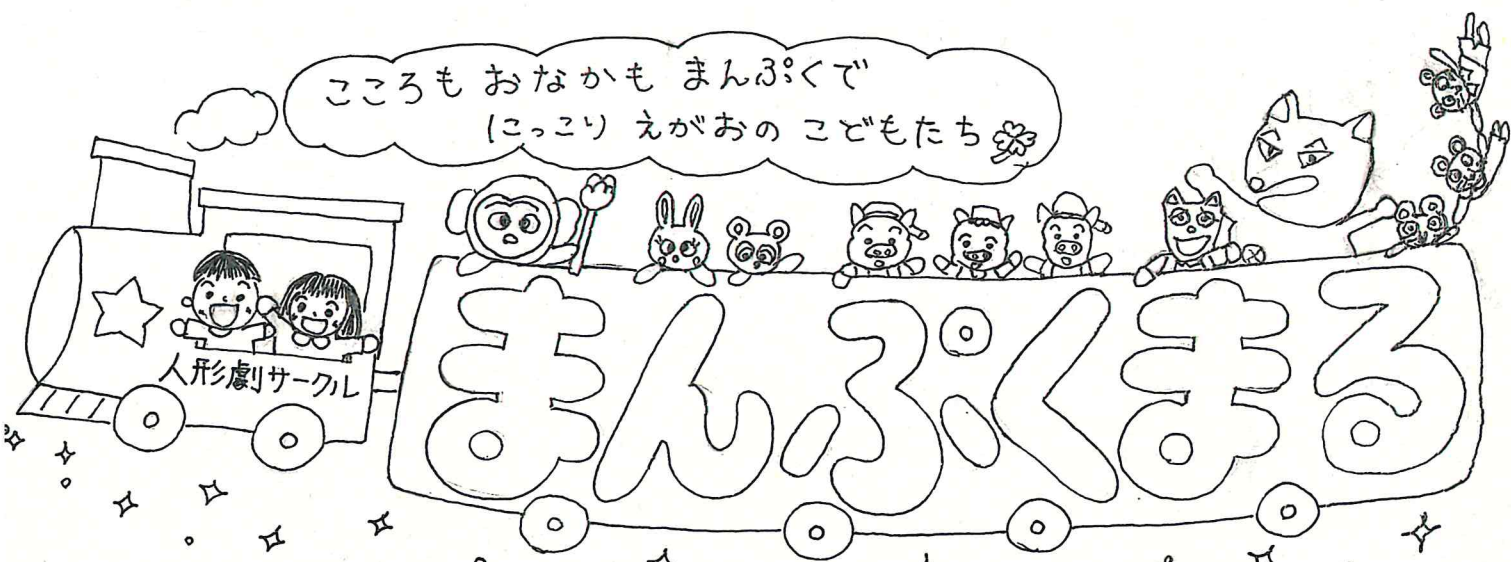 こころも おなかも まんぷくで
にっこり えがおの こどもたち
人形劇サークル
まんぷくまる